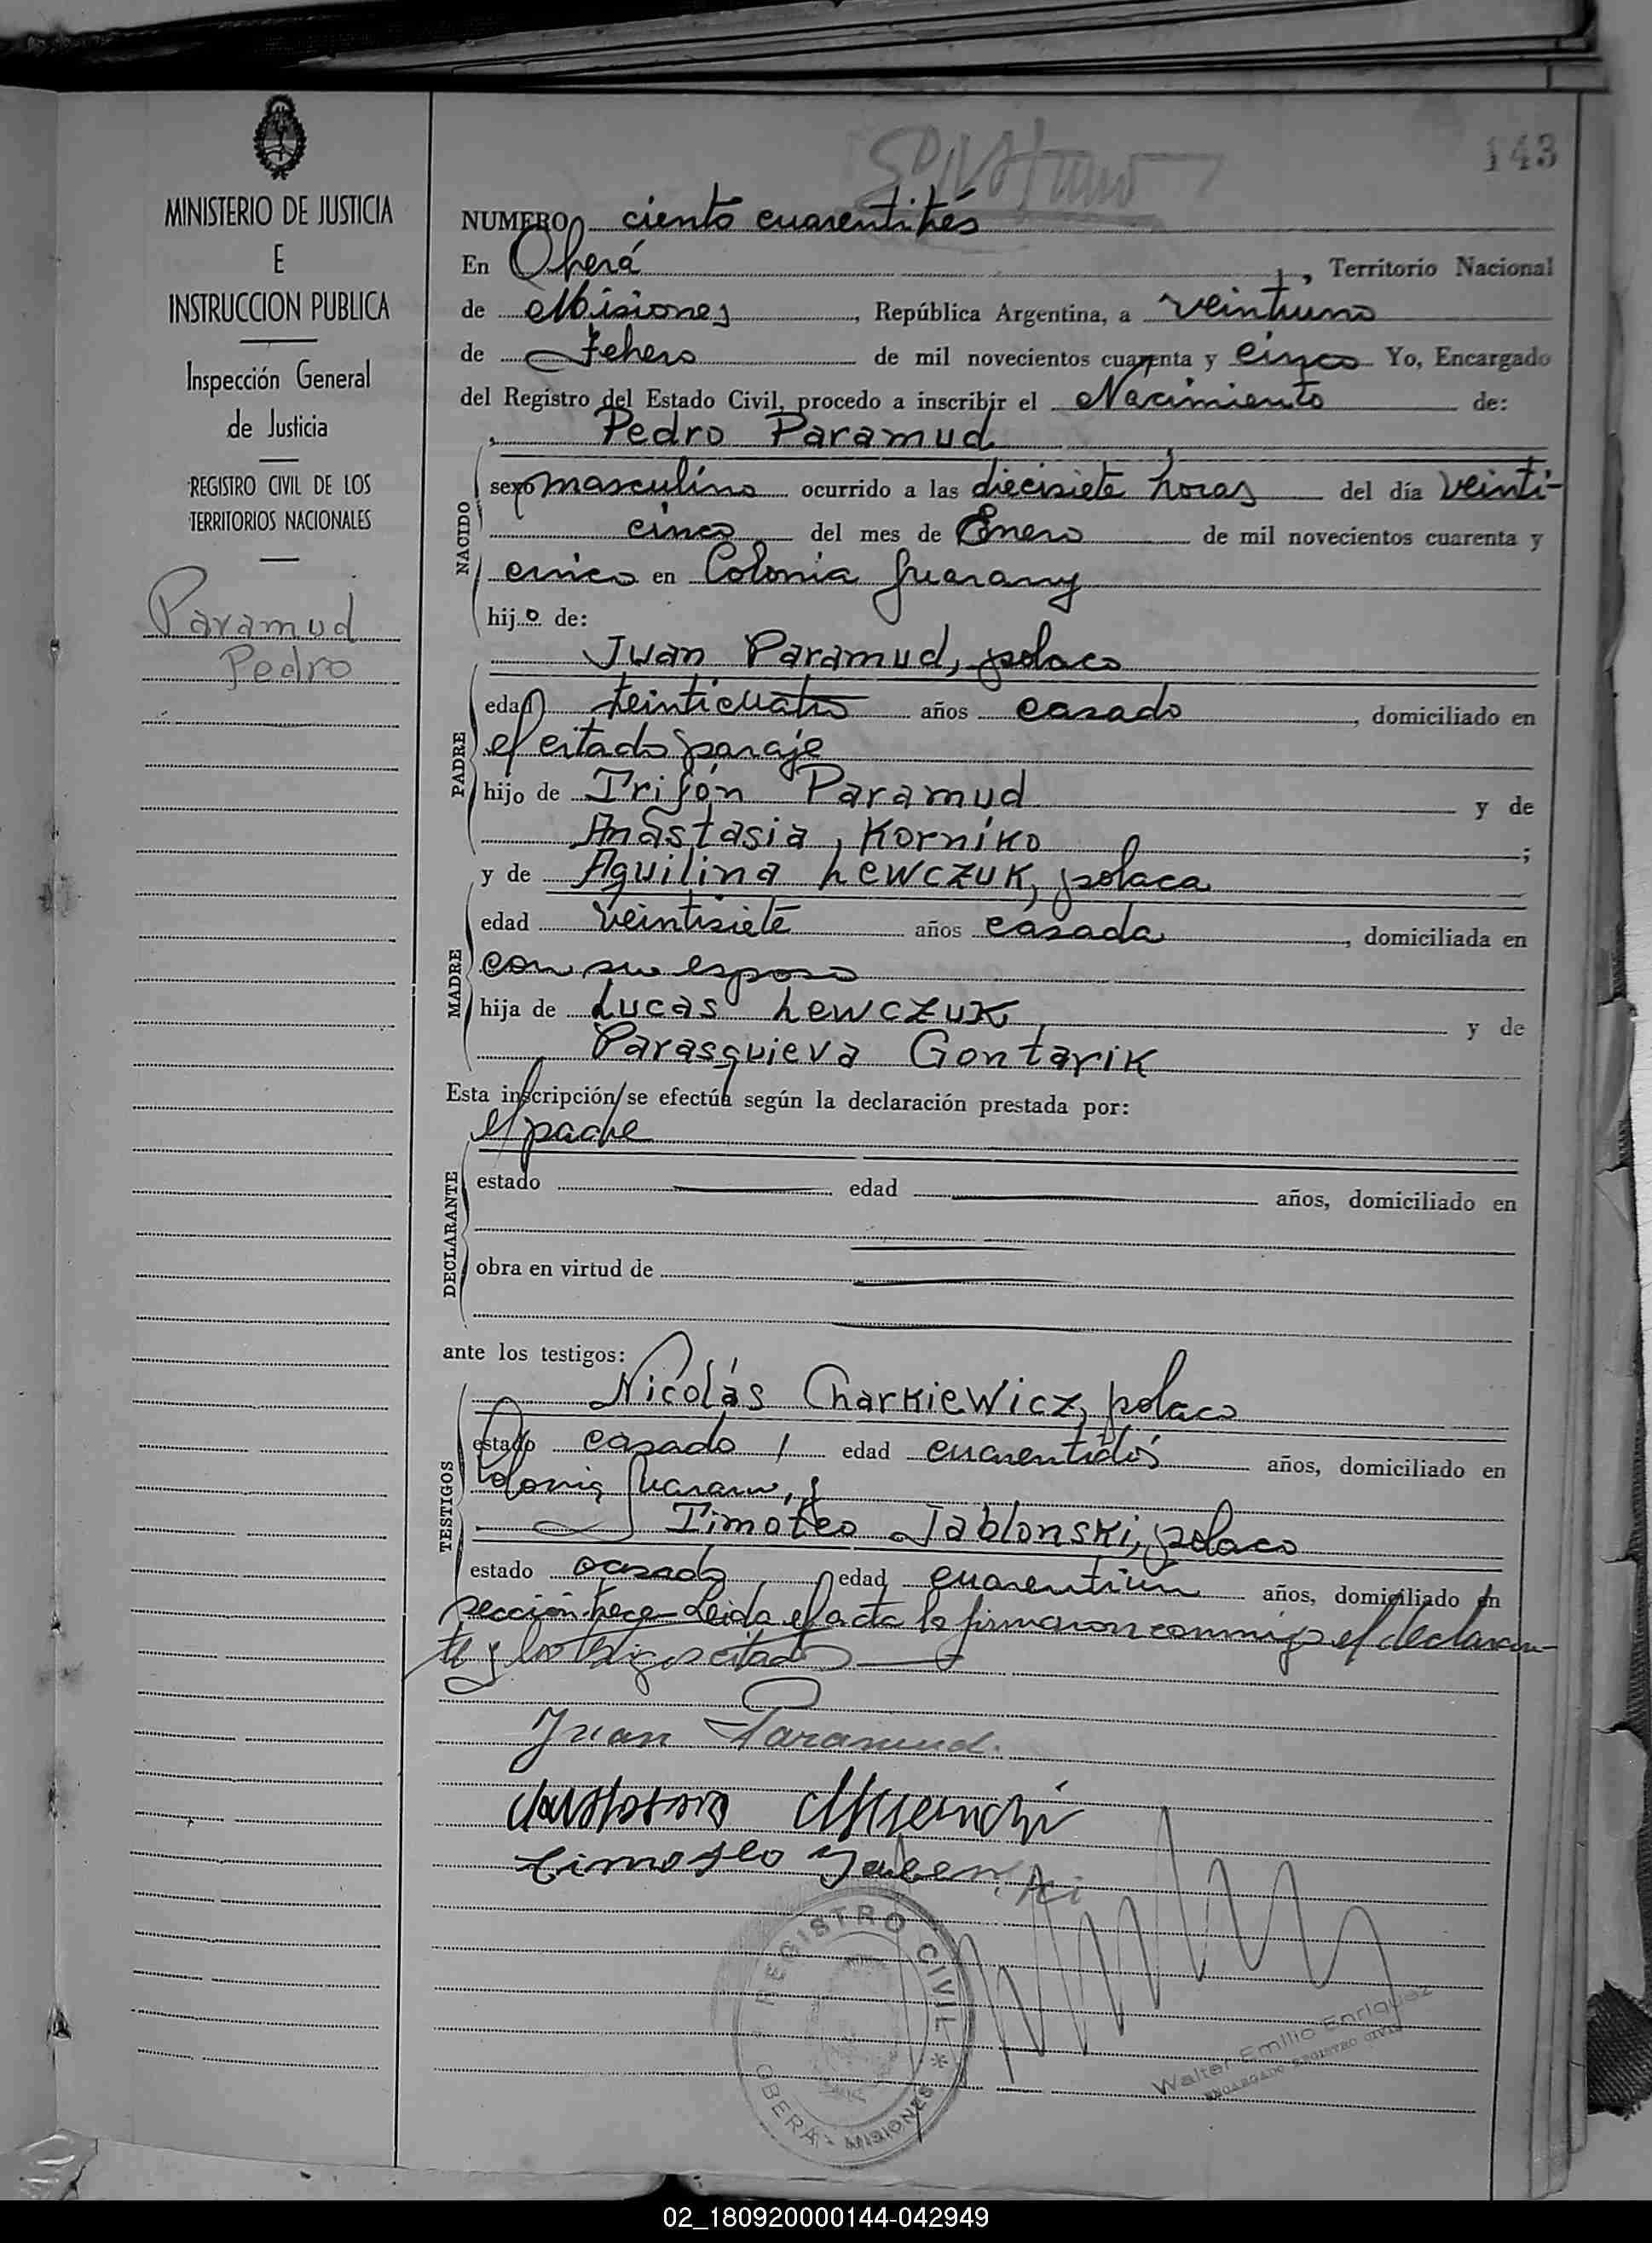 143
MINISTERIO DE JUSTICIA
E
INSTRUCCION PUBLICA
Inspección General
de Justicia
REGISTRO CIVIL DE LOS
TERRITORIOS NACIONALES
Paramud
Pedro
NUMERO ciento cuarentitrés
En Oberá, Territorio Nacional
de Misiones, República Argentina, a veintiuno
de Febrero de mil novecientos cuarenta y cinco Yo, Encargado
del Registro del Estado Civil, procedo a inscribir el Nacimiento de:
Pedro Paramud
NACIDO
sexo masculino ocurrido a las diecisiete horas del día veinti-
cinco del mes de Enero de mil novecientos cuarenta y
cinco en Colonia Guarany
hijo de:
Juan Paramud, polaco
PADRE
edad treinticuatro años casado, domiciliado en
el citado paraje
hijo de Trifón Paramud y de
Anastasia Korniko;
y de Aquilina Lewczuk, polaca
MADRE
edad veintisiete años casada, domiciliada en
con su esposo
hija de Lucas Lewczuk y de
Parasquieva Gontarik
Esta inscripción se efectúa según la declaración prestada por:
el padre
DECLARANTE
estado edad años, domiciliado en
obra en virtud de
ante los testigos:
Nicolás Charkiewicz, polaco
TESTIGOS
estado casado, edad cuarentidós años, domiciliado en
Colonia Guarany, y
Timoteo Jablonski, polaco
estado casado, edad cuarentiún años, domiciliado en
sección trece- Leida el acta la firmaron conmigo el declaran-
te y los testigos citados
Juan Paramud.
REGISTRO CIVIL
OBERÁ - MISIONES
Walter Emilio Enriquez
ENCARGADO REGISTRO CIVIL
02_180920000144-042949